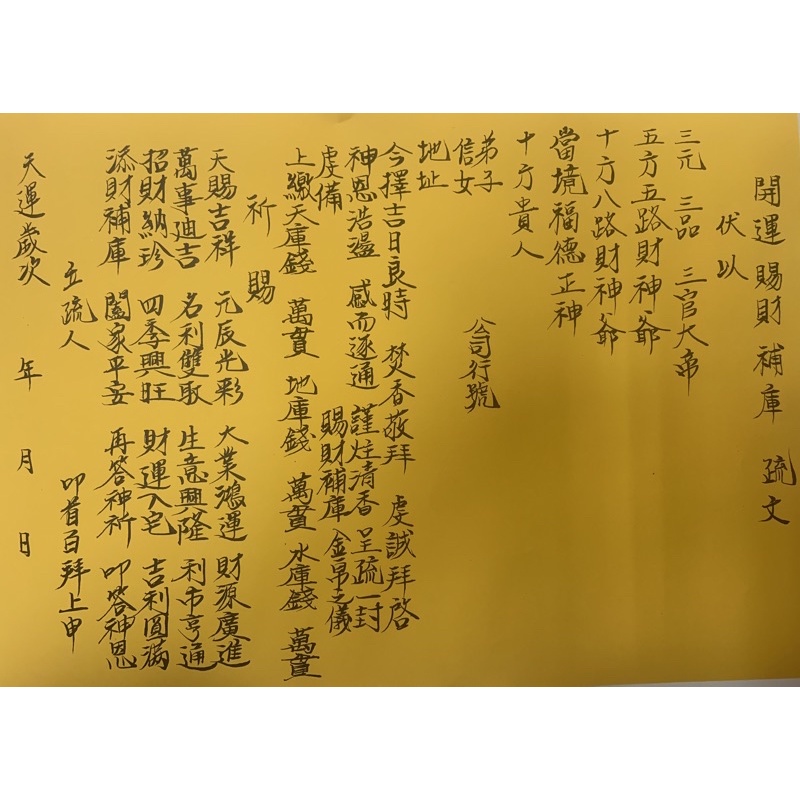 開運 賜財補庫 疏文
伏以
三元 三品 三官大帝
五方五路財神爺
十方八路財神爺
當境福德正神
十方貴人
弟子
信女 公司行號
地址
今擇吉日良時 焚香敬拜 虔誠拜啓
神恩浩盪 感而逐通 謹炷清香 呈疏一封
虔備 賜財補庫 金帛之儀
上繳天庫錢 萬貫 地庫錢 萬貫 水庫錢 萬貫
祈 賜
天賜吉祥 元辰光彩 大業鴻運 財源廣進
萬事迪吉 名利雙取 生意興隆 利市亨通
招財納珍 四季興旺 財運入宅 吉利圓滿
添財補庫 闔家平安 再答神祈 叩答神恩
立疏人 叩首百拜上申
天運歲次 年 月 日